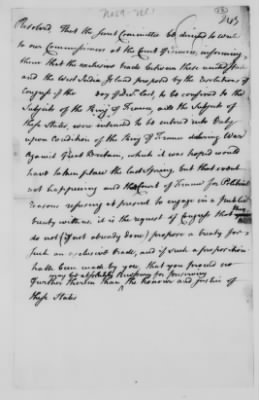 Resolved, That the secret Committee be directed to write
to our Commissioners at the Court of France, informing
them that the exclusive trade between these united States
and the West India Islands proposed by the resolutions of
Congress of the day of last, to be confined to the
Subjects of the King of France, and the Subjects of
these States, were intended to be entered into only
upon Condition of the King of France declaring War
against Great Britain, which it was hoped would
have taken place the last Spring. but that event
not happening and the Court of France for Political
reasons refusing at present to engage in a public
treaty with us. it is the request of Congress that they
do not (if not already done) propose a treaty for
such an exclusive trade, and if such a proposition
hath been made by you, that you proceed no
further therein than may be absolutely necessary for preserving
the honour and justice of
these States